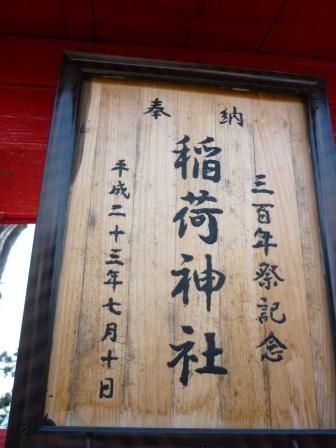 奉納
三百年祭記念
稲荷神社
平成二十三年七月十日